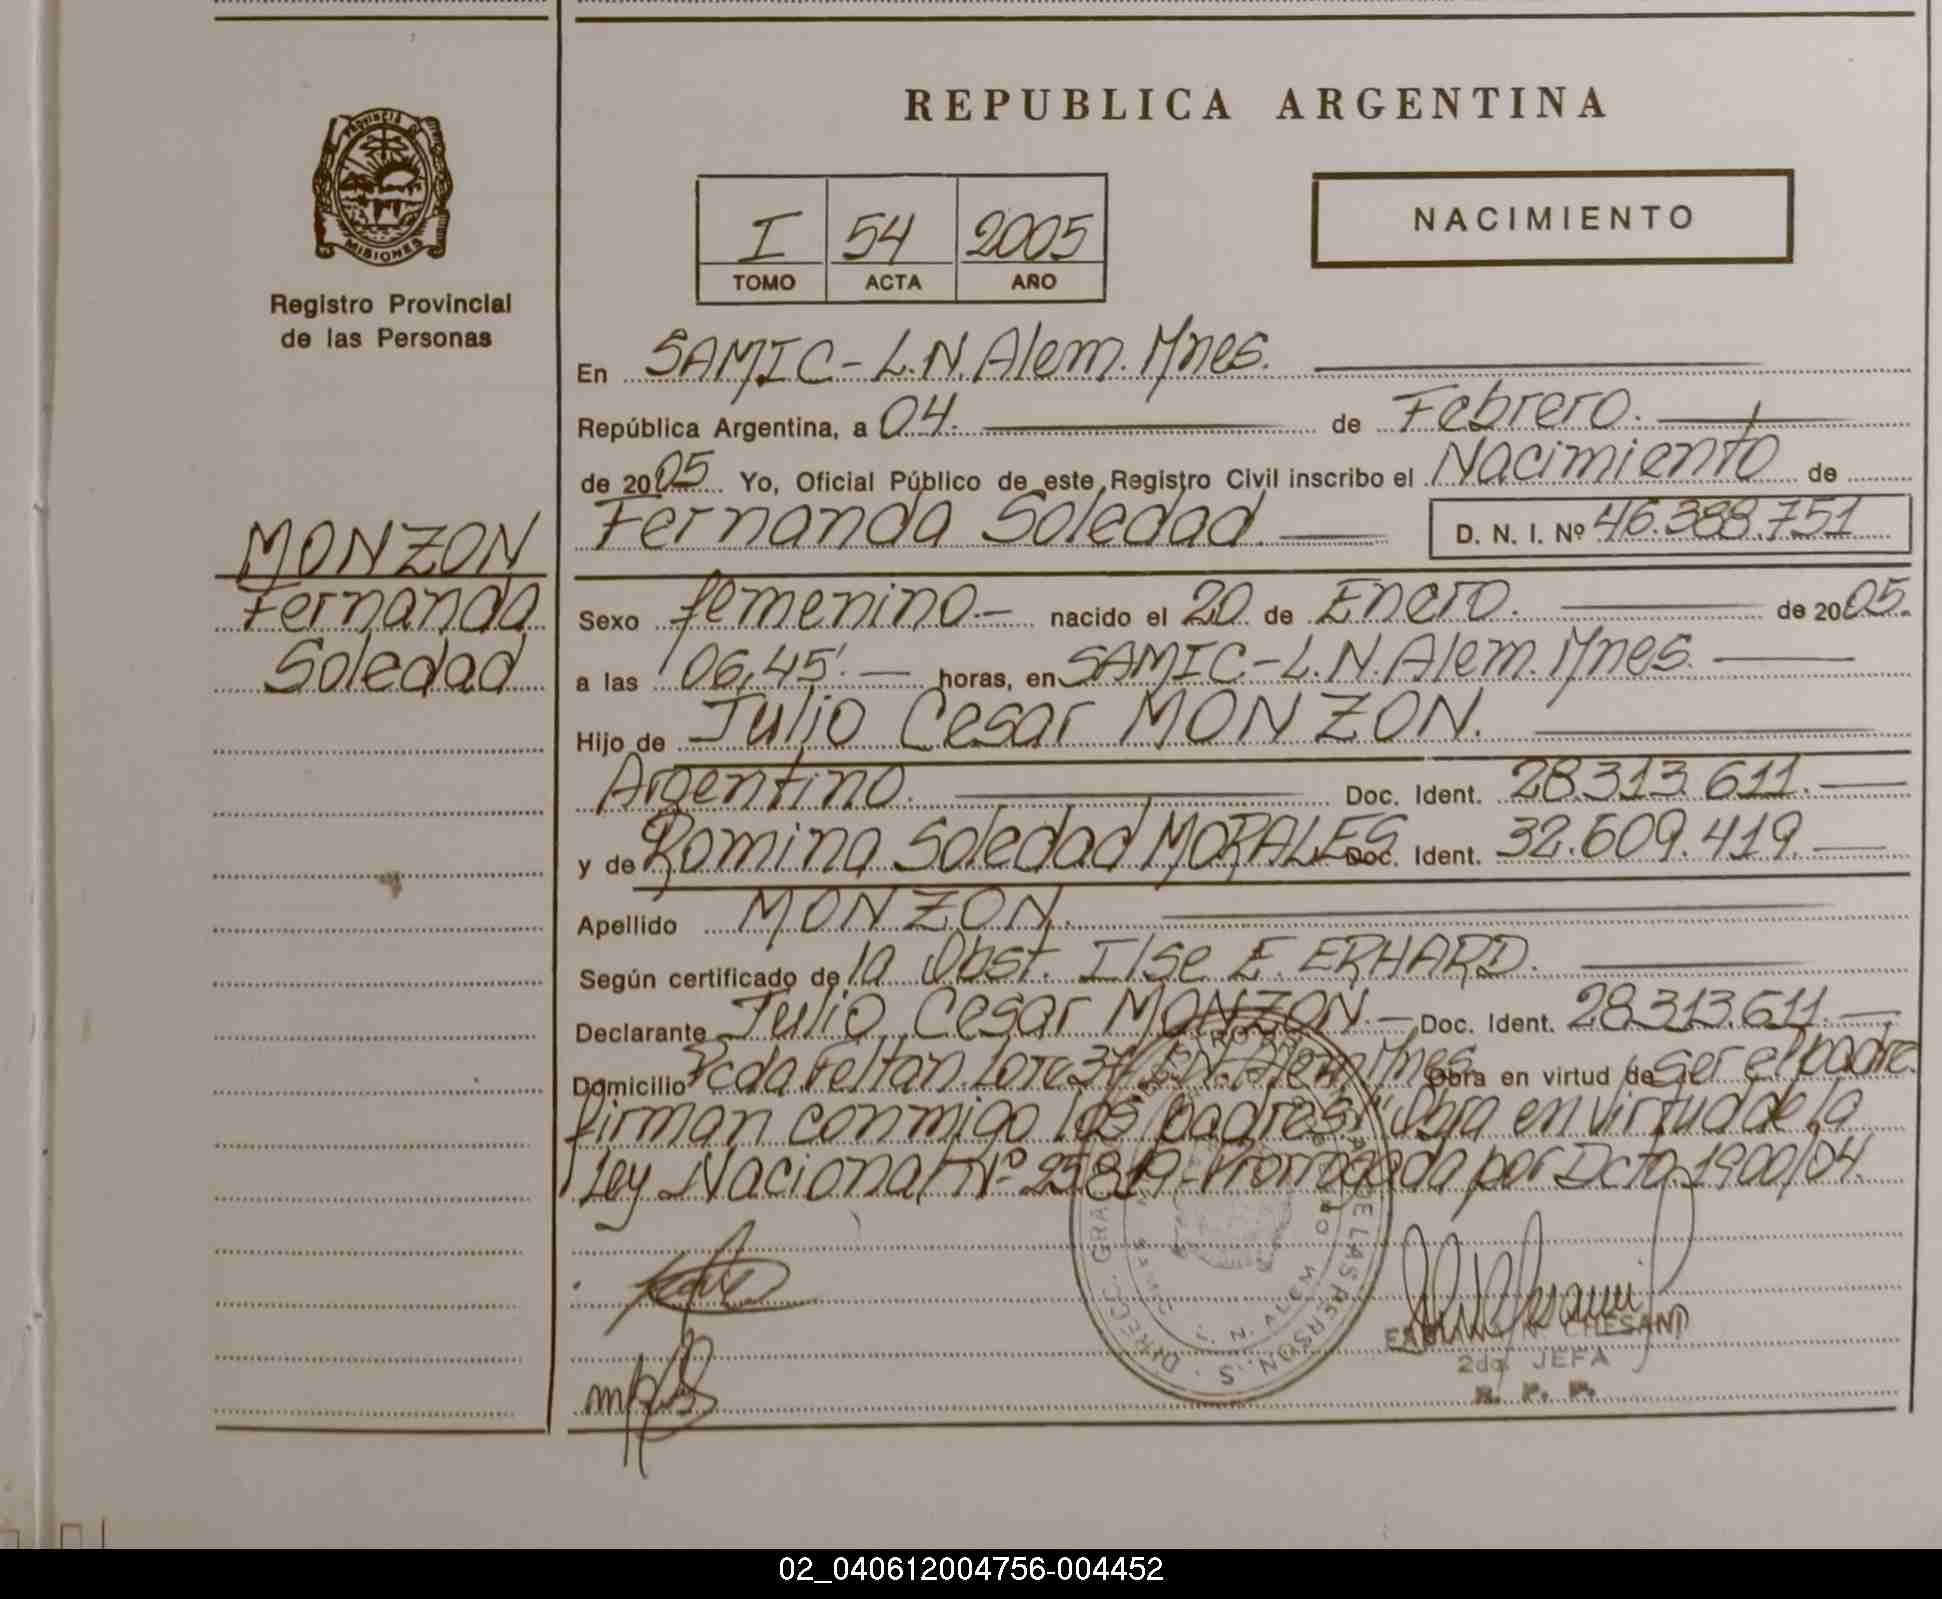 REPUBLICA ARGENTINA
PROVINCIA DE
MISIONES
Registro Provincial
de las Personas
NACIMIENTO
I 54 2005
TOMO ACTA AÑO
En SAMIC-L.N.Alem.Mnes.
República Argentina, a 04. de Febrero.
de 2005 Yo, Oficial Público de este Registro Civil inscribo el Nacimiento de
Fernanda Soledad. D. N. I. Nº 46.388.751
MONZON
Fernanda
Soledad
Sexo femenino.- nacido el 20 de Enero. de 2005.
a las 06,45'. horas, en SAMIC-L.N.Alem.Mnes.
Hijo de Julio Cesar MONZON.
Argentino. Doc. Ident. 28.313.611.
y de Romina Soledad MORALES Doc. Ident. 32.609.419.
Apellido MONZON.
Según certificado de la Obst. Ilse E. ERHARD.
Declarante Julio Cesar MONZON.- Doc. Ident. 28.313.611.
Domicilio Pcda. Lote Alem Mnes Obra en virtud de ser el padre.
firman conmigo los padres." Obra en virtud de la
Ley Nacional Nº 25.819-Prorrogada por Dcto. 1900/04.
DE LAS PERSONAS
DIREC. GRAL
SAMIC L. N. ALEM
N. CHESANI
2da. JEFA
R. P. P.
02_040612004756-004452